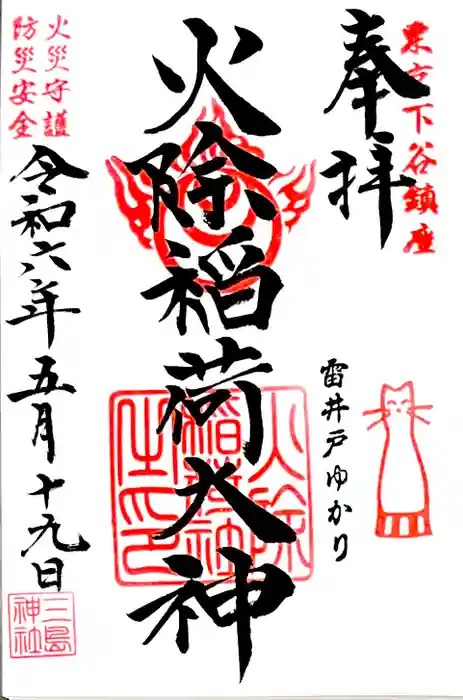 東京下谷鎮座
奉拝
雷井戸ゆかり
火除稲荷大神
火除
稲荷神社
之印
火災守護
防災安全
令和六年五月十九日
三島
神社